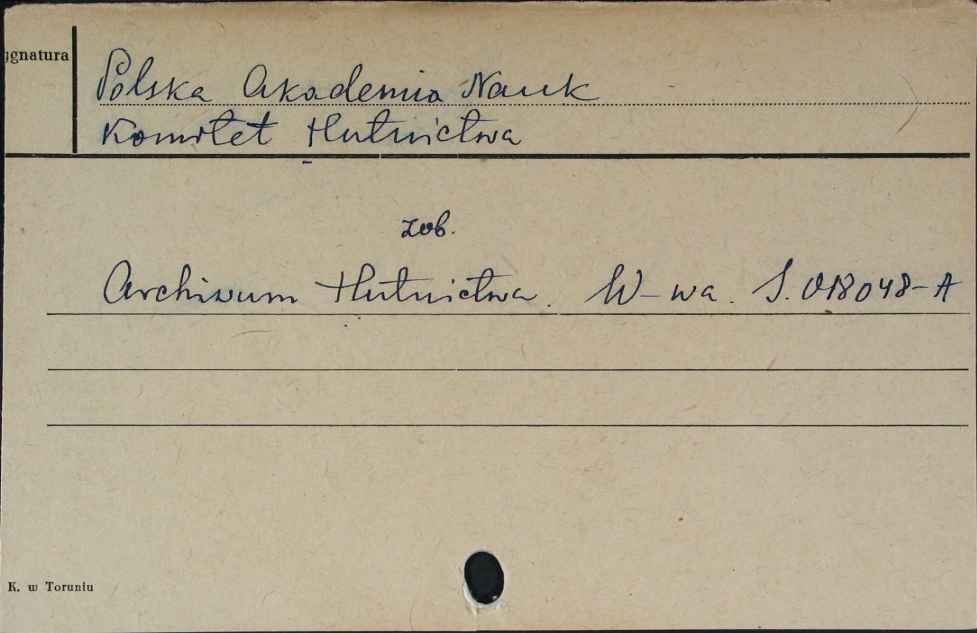 ygnatura
Polska Akademia Nauk
Komitet Hutnictwa
zob.
Archiwum Hutnictwa. W-wa. S. 018048-A
K. w Toruniu